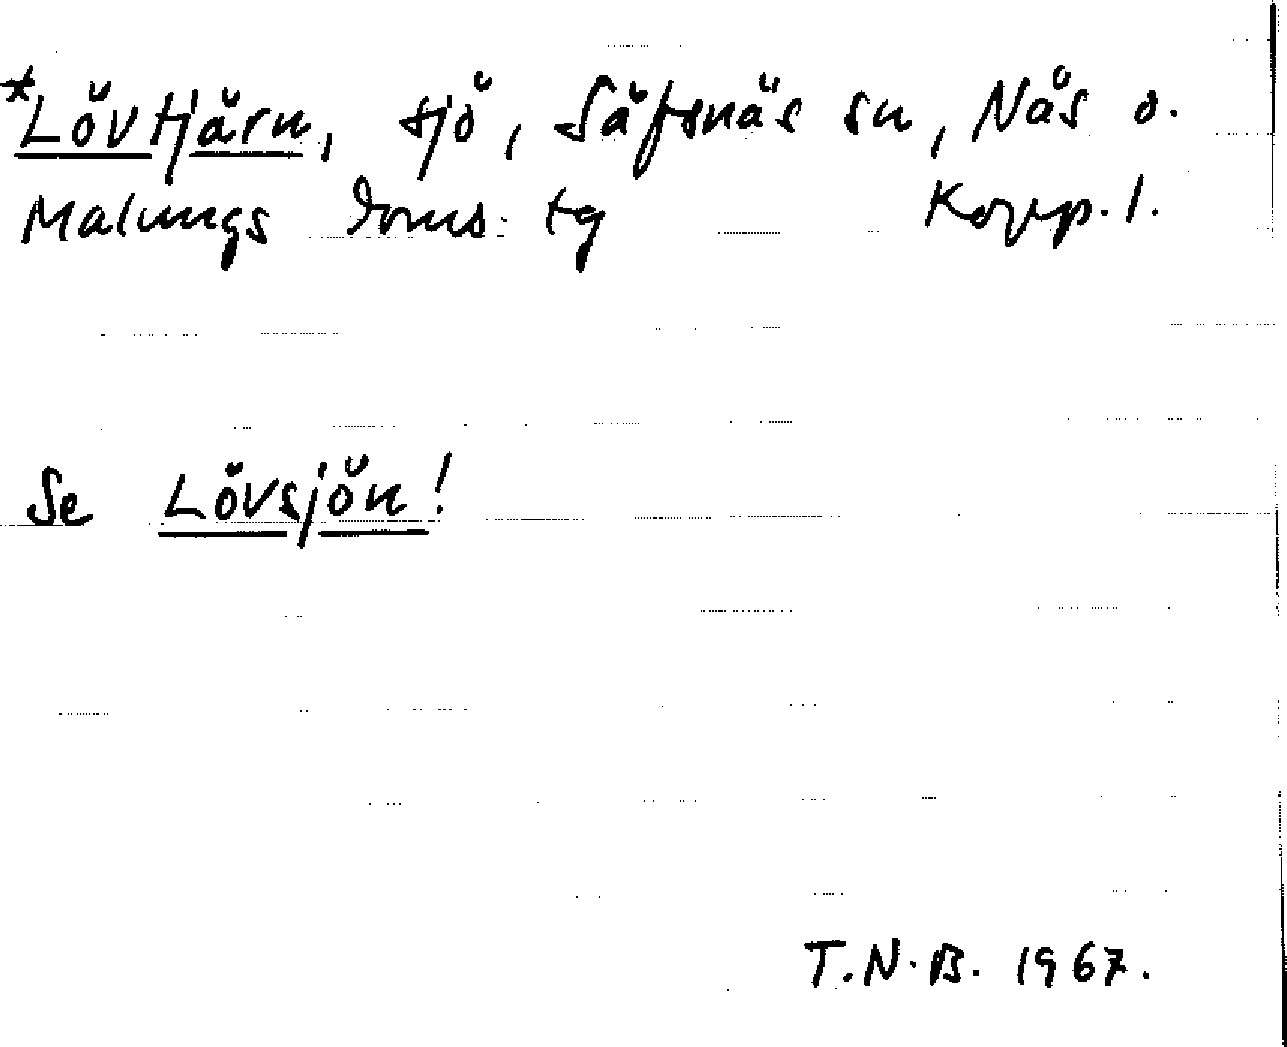 *Lövtjärn, sjö, Säfsnäs sn, Nås o.
Malungs doms. tg Kopp. l.
Se Lövsjön!
T.N.B. 1967.